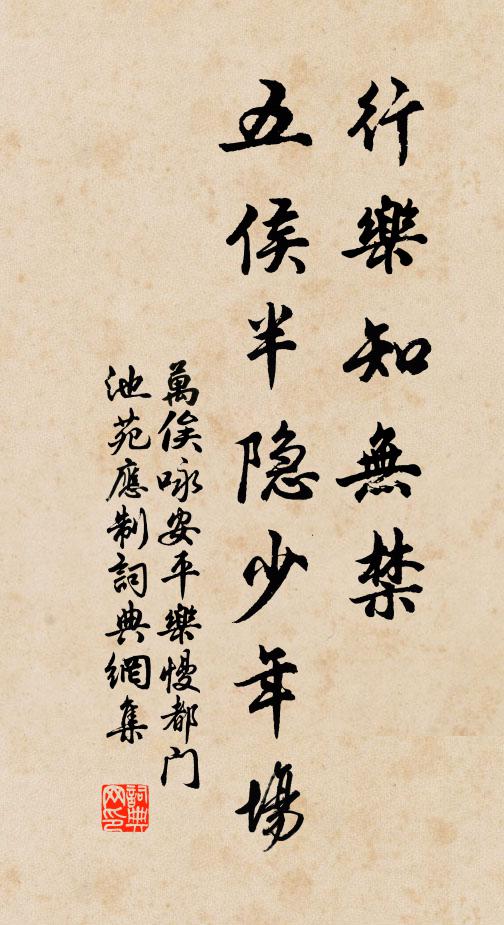 行樂知無禁
五侯半隐少年場
萬俟咏安平樂慢都门
池苑應制詞典網集
詞典网印